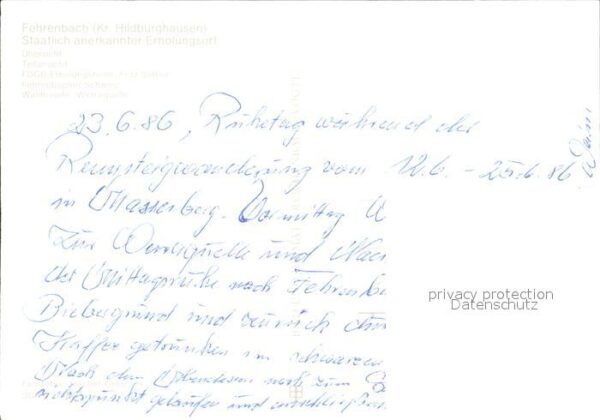 Fehrenbach (Kr. Hildburghausen)
Staatlich anerkannter Erholungsort
Übersicht
Teilansicht
Fehrenbacher Schweiz
Werraquelle
23.6.86, Ruhetag während der
Rennsteigwanderung vom 12.6. - 25.6.86
in Masserberg. Vormittag
zur Werraquelle und
der Mittagsruhe nach Fehrenb
Biebergrund und zurück
Kaffee getrunken im schwarzen
Nach dem Abendessen noch zum
sichtspunkt gelaufen und anschließen
privacy protection
Datenschutz